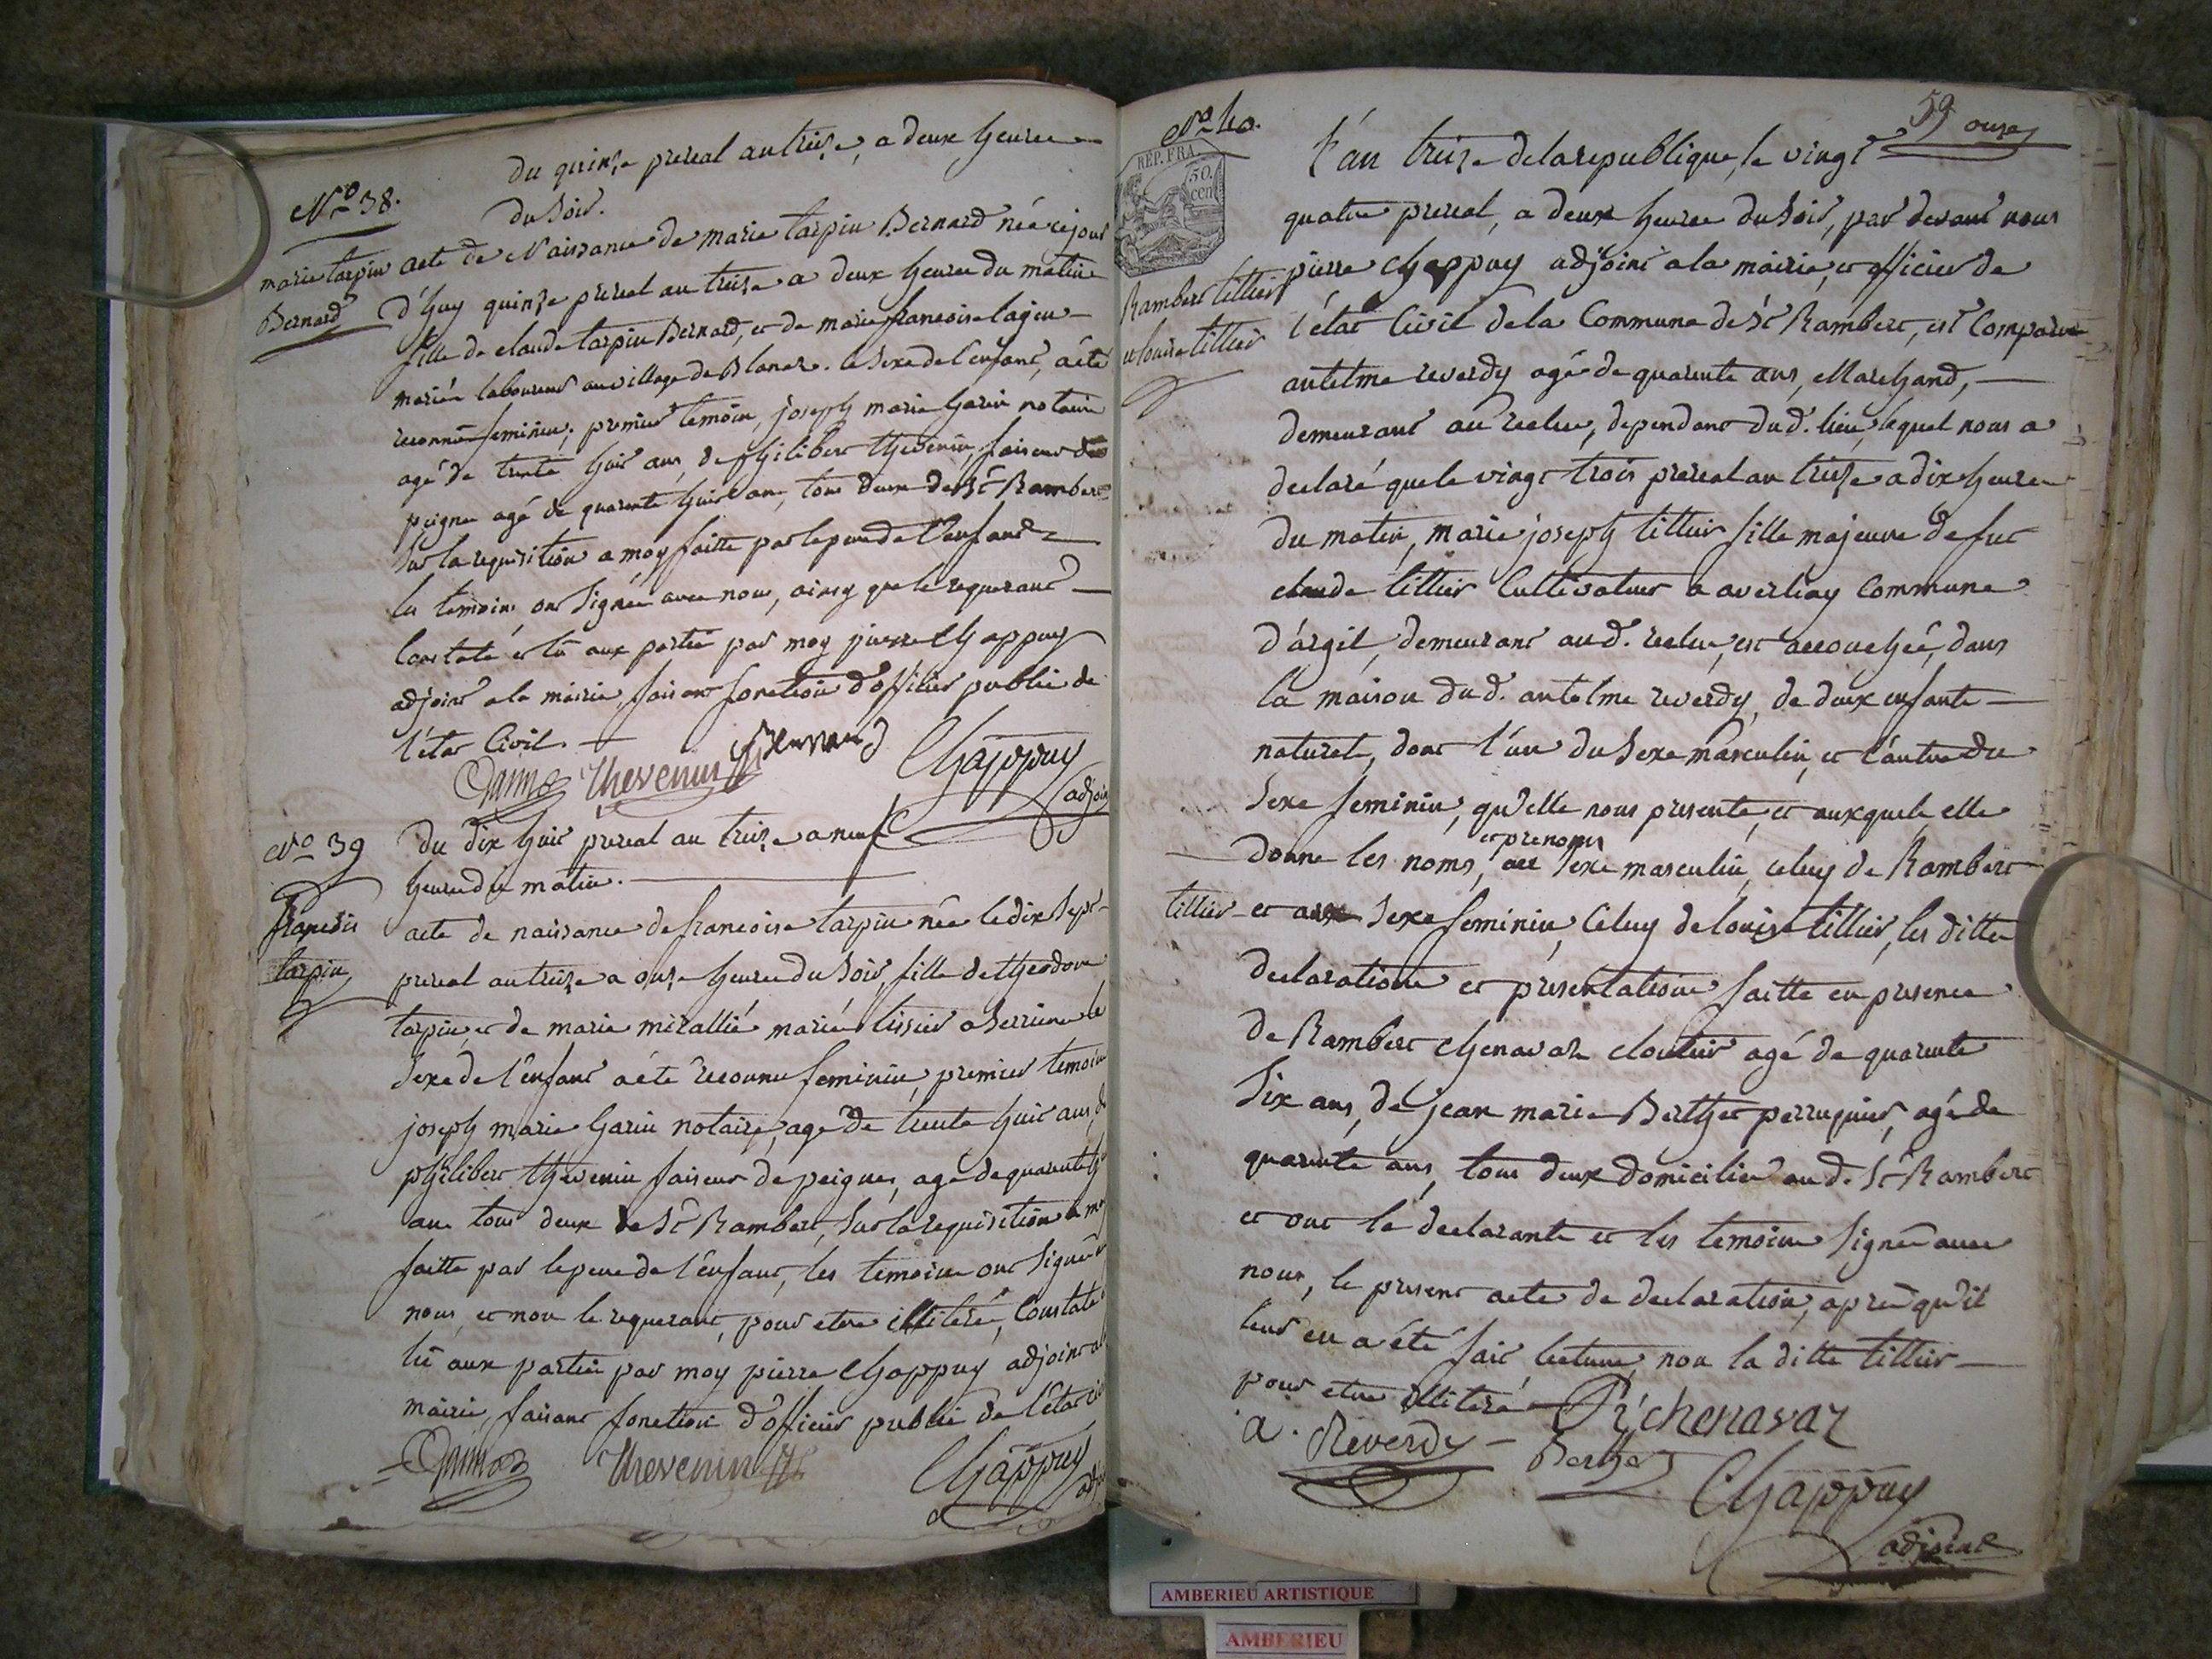 du quinze prereal an treize, a deux heures
du soir.
N° 38.
marie tarpin
Bernard
acte de Naissance de marie tarpin Bernard née ce jour
d'huy quinze prereal an treize a deux heures du matin
fille de claude tarpin Bernard, et de marie francoise
mariés laboureur au village de Blanaz. le sexe de l'enfant, a été
reconnu feminin; premier temoin, joseph marie Garin notaire
agé de trente huit ans, de philibert thevenin, faiseur de
peignes agé de quarante huit ans, tous deux de St Rambert
sur la requisition a moy faitte par le pere de l'enfant
les temoins ont signée avec nous, ainsy que le requerant
Constaté et lû aux parties par moy pierre Chappuy
adjoint a la mairie, faisant fonction d'officier public de
l'état Civil.
Thevenin Bernard Chappuy
adjoint
N° 39
francoise
tarpin
du dix huit prereal an treize a neuf
heures du matin.
acte de naissance de francoise tarpin née le dix sept
prereal an treize a onze heures du soir, fille de theodore
tarpin, et de marie mirallié mariés tissier a Serrieres le
sexe de l'enfant a été reconnu feminin, premier temoin
joseph marie Garin notaire, agé de trente huit ans, de
philibert thevenin faiseur de peignes, agé de quarante
ans tous deux de St Rambert, sur la requisition a moy
faitte par le pere de l'enfant, les temoins ont signée
nous, et non le requerant, pour etre illiteré, Constaté
lû aux parties par moy pierre Chappuy adjoint a la
mairie, faisant fonction d'officier public de l'état
Thevenin Chappuy
59 onze
N° 40.
REP. FRA.
50.
cent
Rambert tillier
et louise tillier
L'an treize de la republique, le vingt
quatre prereal, a deux heures du soir, par devant nous
pierre Chappuy adjoint a la mairie, et officier de
l'état Civil de la Commune de St Rambert, est Comparu
antelme reverdy agé de quarante ans, Marchand,
demeurant au reclu, dependant dud. lieu, lequel nous a
declaré que le vingt trois prereal an treize a dix heures
du matin, marie joseph tillier fille majeure de fut
claude tillier Cultivateur a averliay Commune
d'argit, demeurant aud. reclu, est accouchée, dans
la maison dud. antelme reverdy, de deux enfants
naturel, dont l'un du sexe masculin, et l'autre du
sexe feminin, qu'elle nous presente, et auxquels elle
et prenoms
donne les noms, au sexe masculin, celuy de Rambert
tillier et au sexe feminin, Celuy de louise tillier, les dittes
declarations et presentations faitte en presence
de Rambert Chenavaz cloutier agé de quarante
six ans, de jean marie Berthet perruquier, agé de
quarante ans, tous deux domiciliés aud. St Rambert
et ont le declarante et les temoins signée avec
nous, le present acte de declaration, aprés qu'il
leur en a été fait lecture, non la ditte tillier
pour etre illiteré
Rt chenavaz
a. Reverdy Berthet
Chappuy
adjoint
AMBERIEU ARTISTIQUE
AMBERIEU